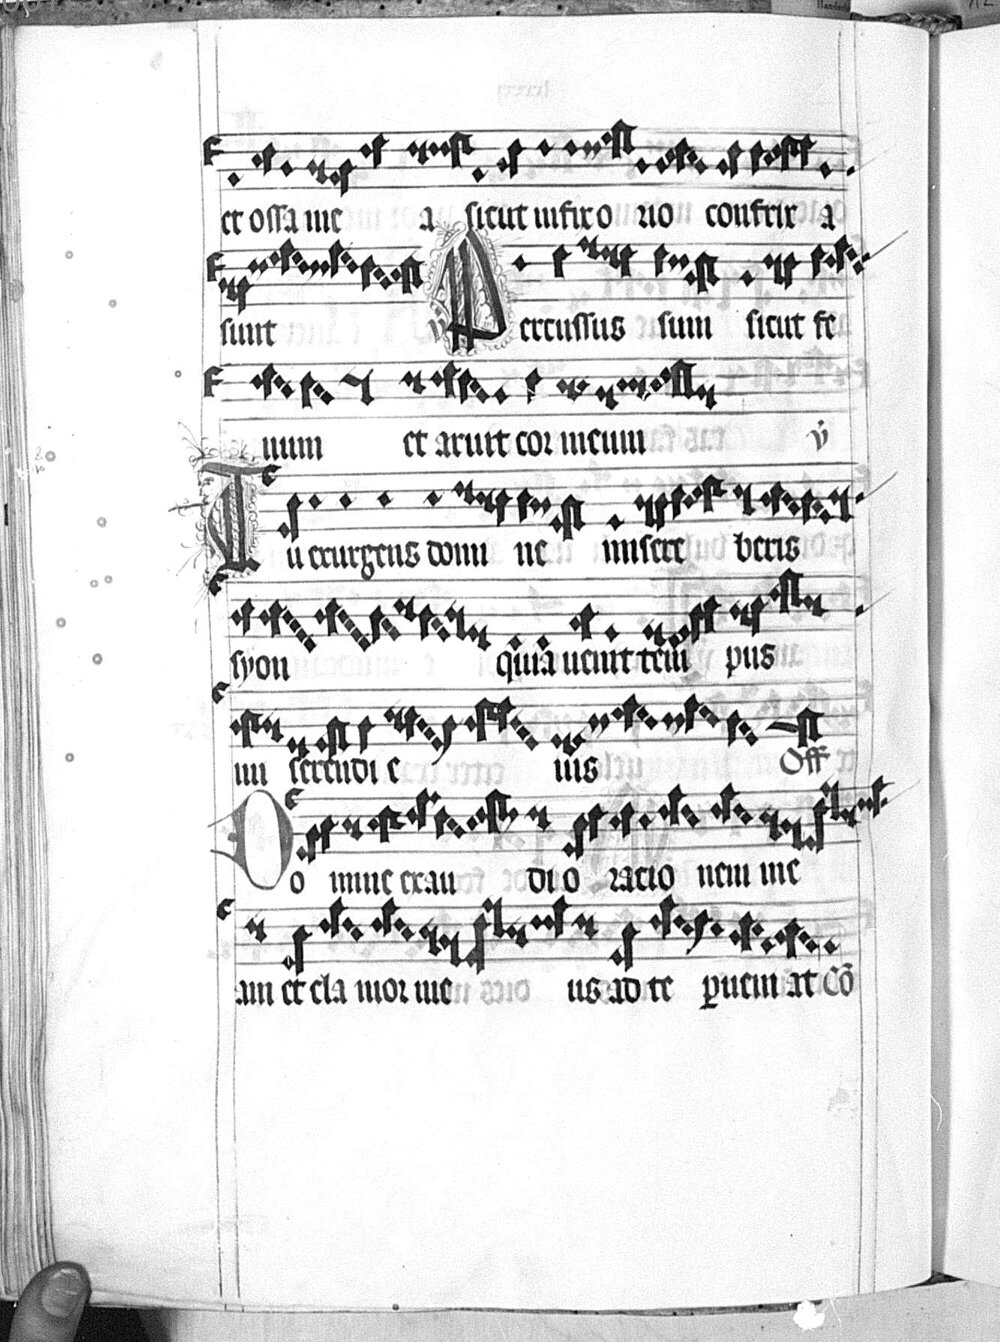 et ossa me a sicut in frix o rio confrix a
sunt v Percussus sum sicut fe
num et aruit cor meum v̇
Tu exurgens domi ne misere beris
syon quia uenit tem pus
mi serendi e ius Off
Do mine exau di o ratio nem me
am et cla mor me us ad te ꝑueni at Cō